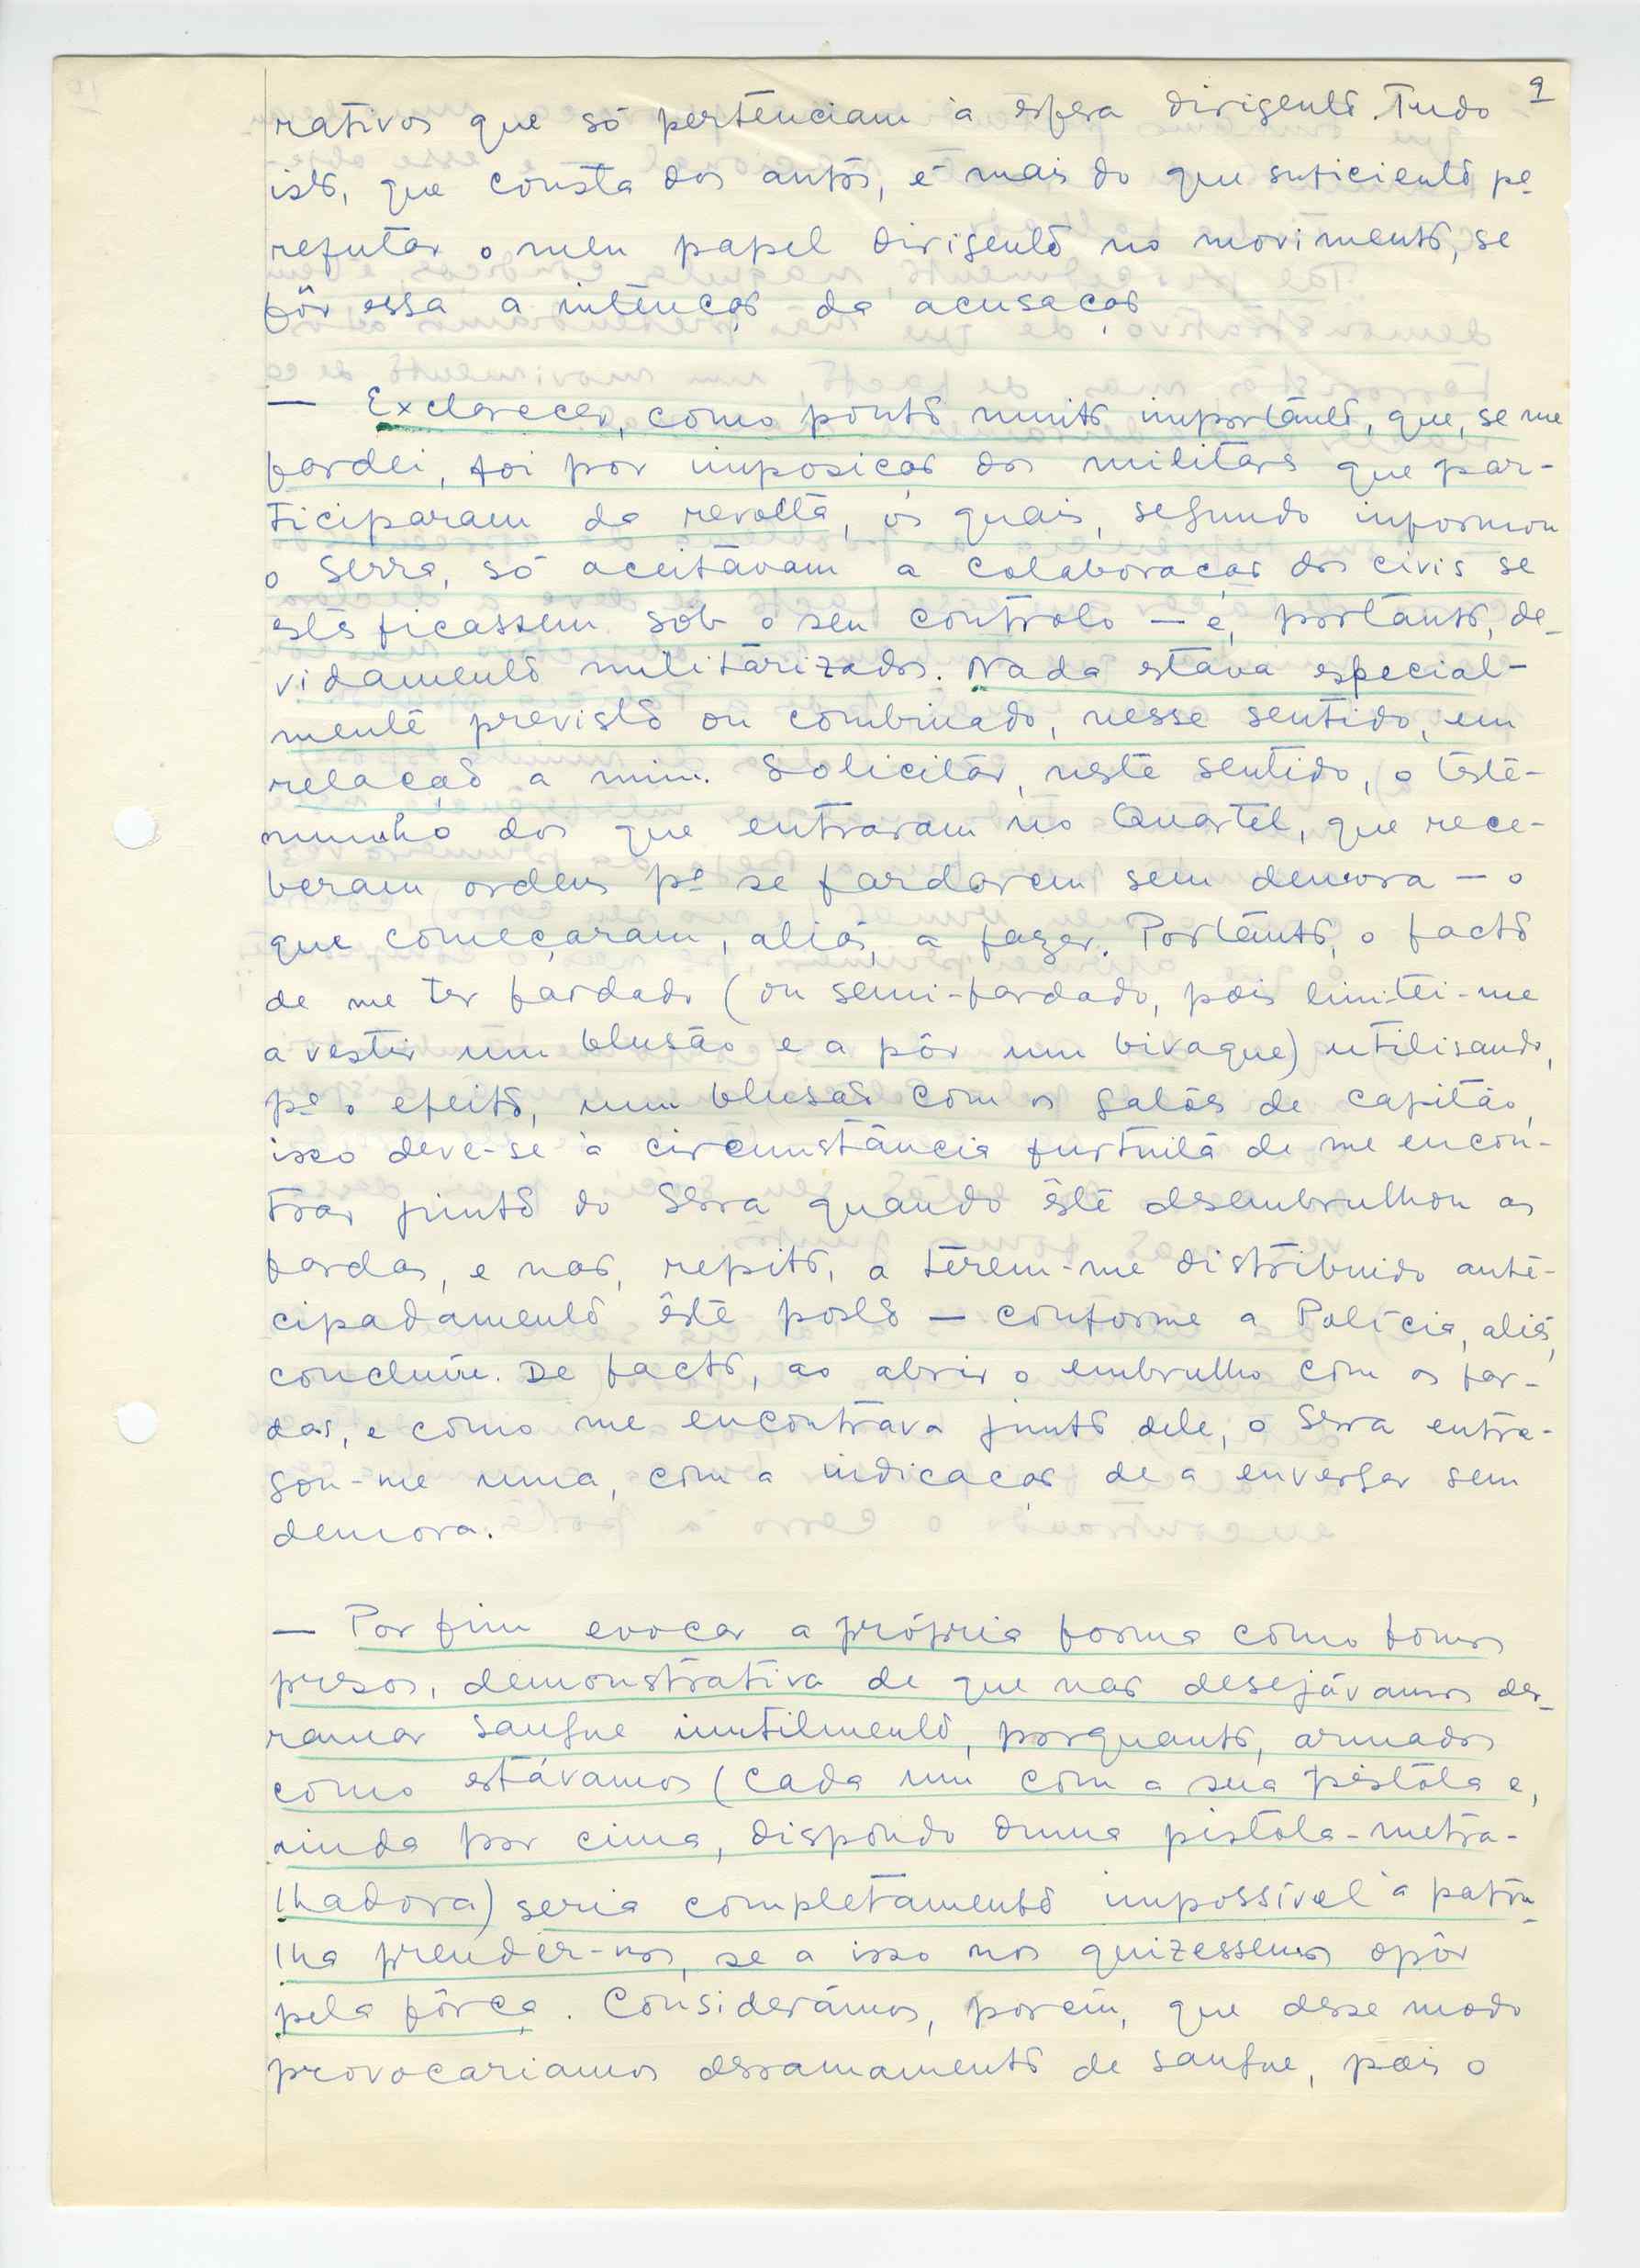 9
rativos que só pertenciam à esfera dirigente. Tudo
isto, que consta dos autos, é mais do que suficiente pª
refutar o meu papel dirigente no movimento, se
fôr essa a intenção da acusação
— Exclarecer, como ponto muito importante, que, se me
fardei, foi por imposição dos militares que par-
ticiparam da revolta, os quais, segundo informou
o Serra, só aceitavam a colaboração dos civis se
estes ficassem sob o seu controlo — e, portanto, de-
vidamente militarizados. Nada estava especial-
mente previsto ou combinado, nesse sentido, em
relação a mim. Solicitar, neste sentido, o teste-
munho dos que entraram no Quartel, que rece-
beram ordens pª se fardarem sem demora — o
que começaram, aliás, a fazer. Portanto, o facto
de me ter fardado (ou semi-fardado, pois limitei-me
a vestir um blusão e a pôr um bivaque) utilisando,
pª o efeito, um blusão com os galões de capitão,
isso deve-se à circunstância furtuita de me encon-
trar junto do Serra quando êste desembrulhou as
fardas, e não, repito, a terem-me distribuido ante-
cipadamente êste posto — conforme a Polícia, aliás,
concluiu. De facto, ao abrir o embrulho com as far-
das, e como me encontrava junto dele, o Serra entre-
gou-me uma, com a indicação de a envergar sem
demora.
— Por fim evocar a própria forma como fomos
presos, demonstrativa de que não desejávamos der-
ramar sangue inutilmente, porquanto, armados
como estávamos (cada um com a sua pistola e,
ainda por cima, dispondo duma pistola-metra-
lhadora) seria completamente impossível à patru-
lha prender-nos, se a isso nos quizessemos opôr
pela fôrça. Considerámos, porém, que desse modo
provocariamos derramamento de sangue, pois o